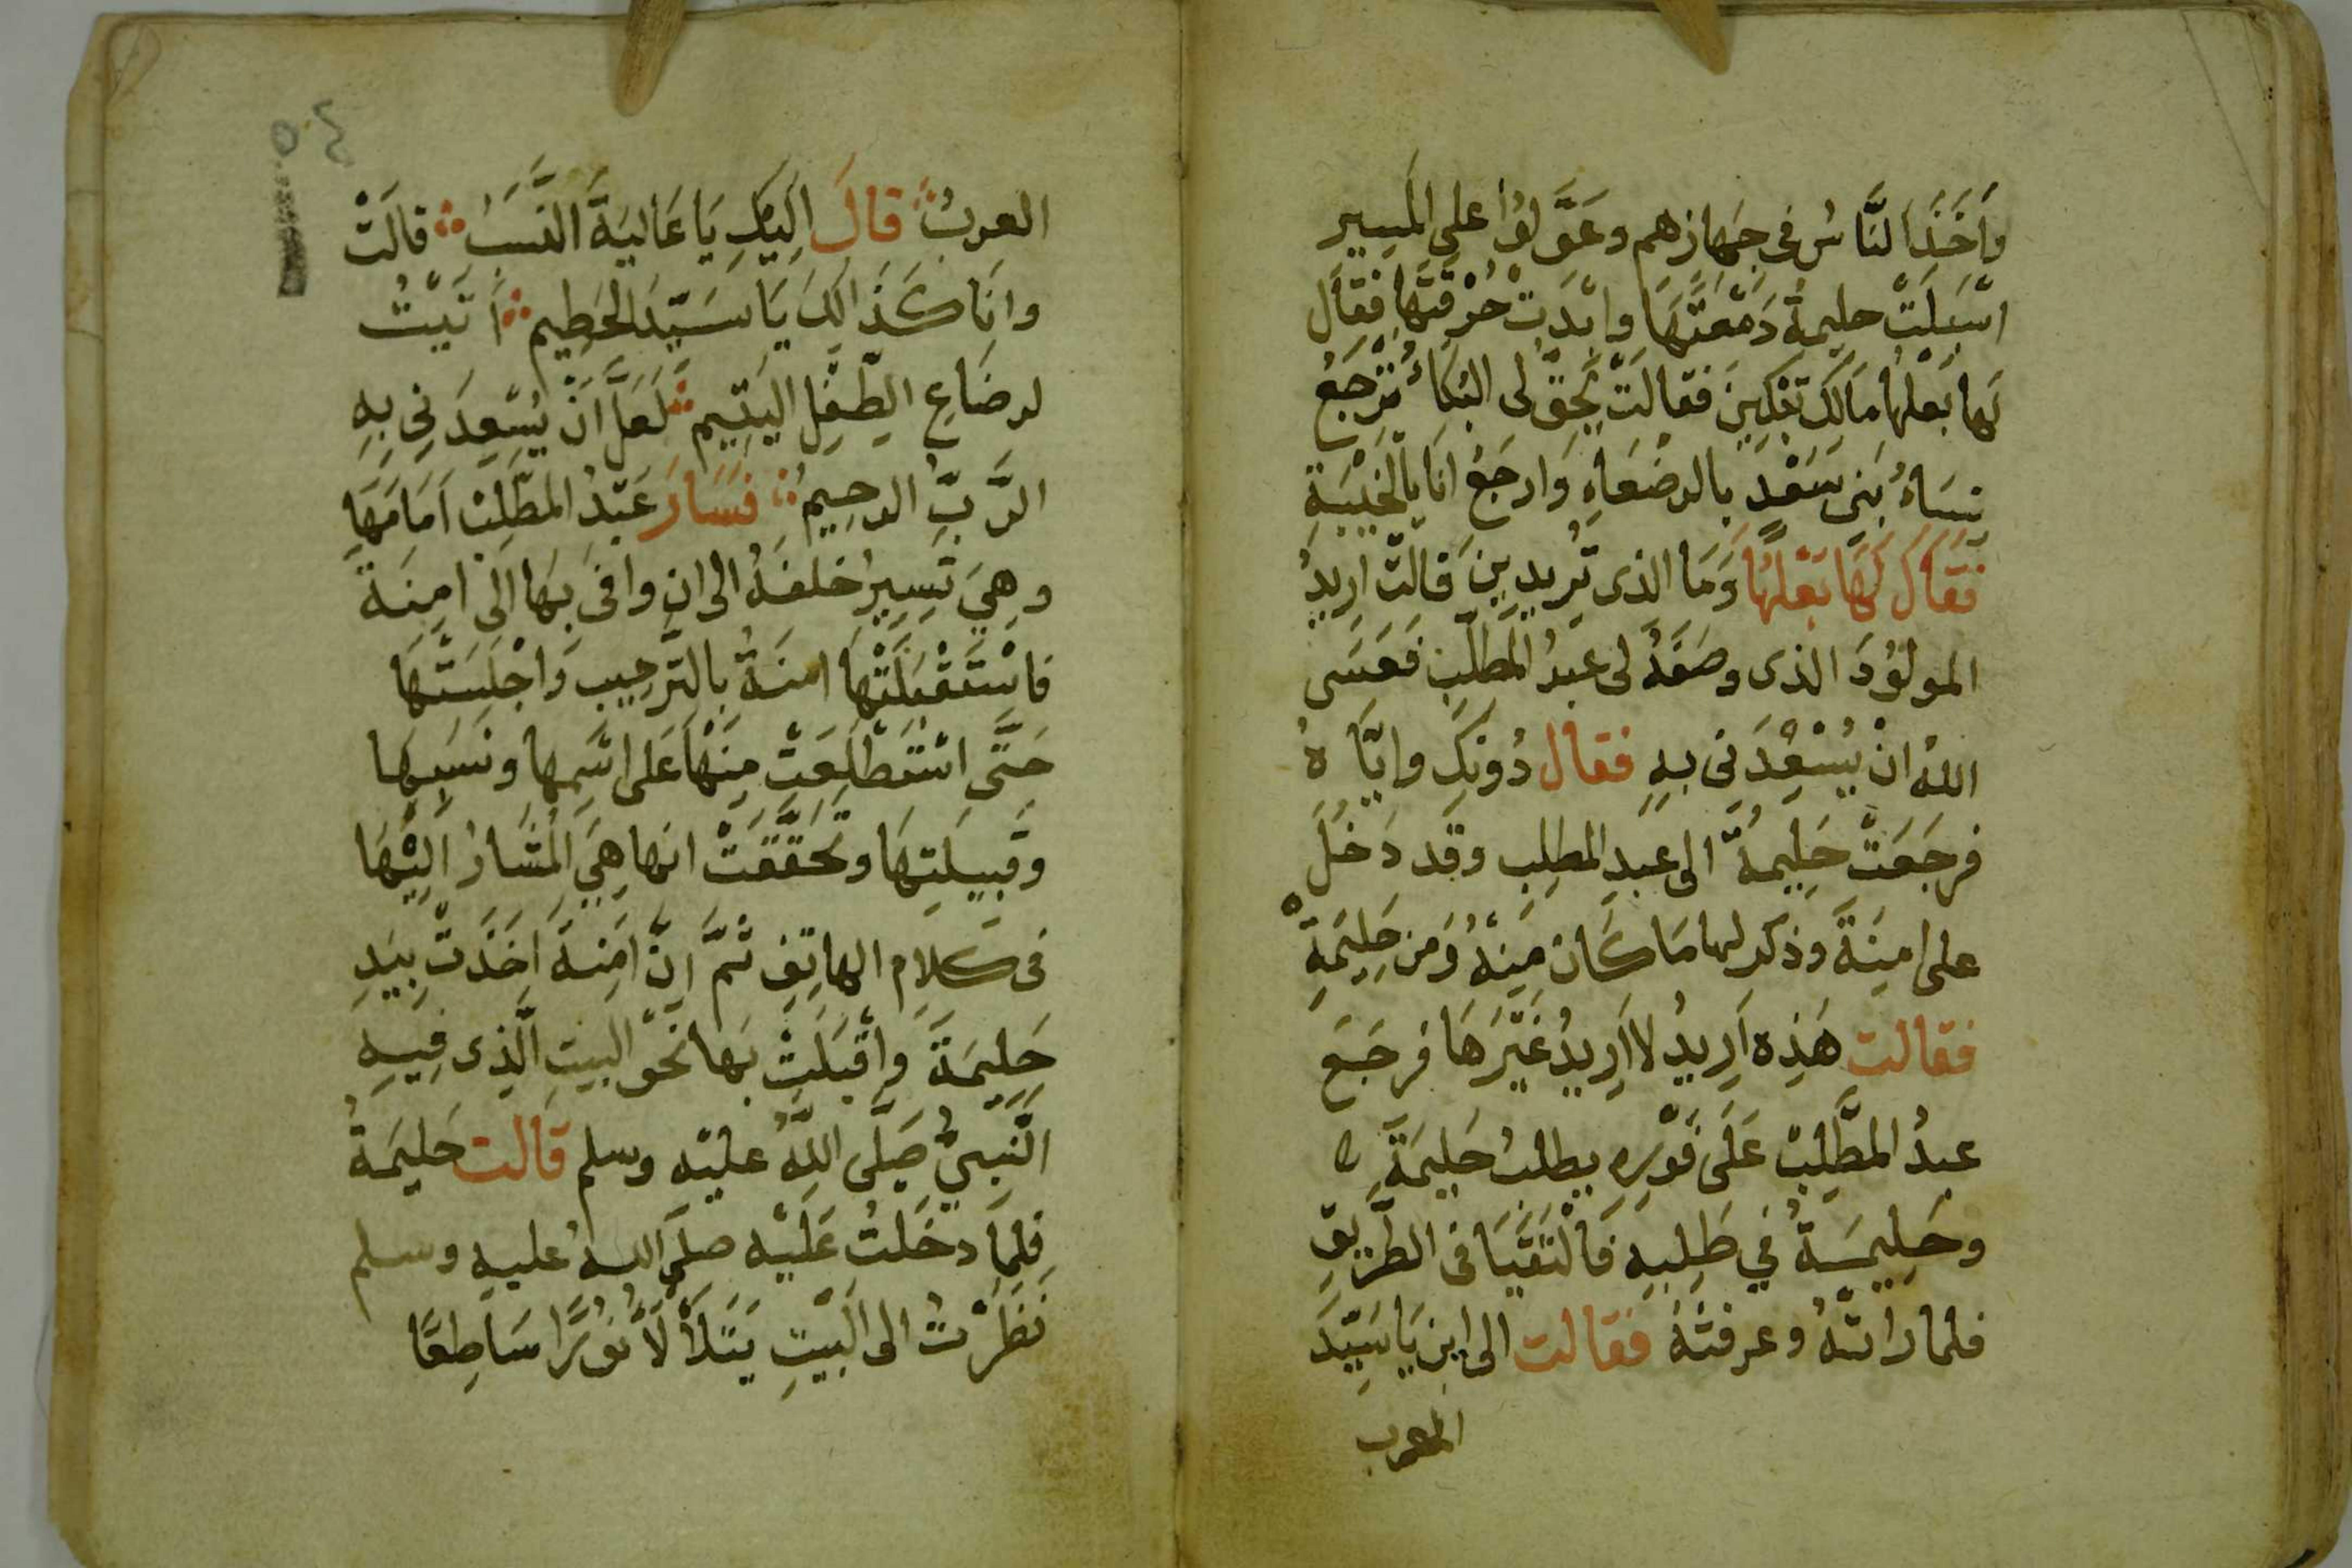 وَاَخَذَ النَّاسُ فى جِهازهم وعَوَّلوُا على المَسِير
اسْبَلَتْ حليمةُ دَمْعَتَهَا وابْدَتْ حُرْقَتَها فقال
لَها بَعْلُها مَالَكِ تَبْكِينَ فقالَتْ يَحِقُّ لى البُكَاءُ تَرْجَعُ
نِسَاءُ بَنِى سَعْدٍ بالرضَعَاءِ وَارجَعُ اَنَا بالخَيْبَةِ
فَقَالَ لَهَا بَعْلُهَا وَمَا الذى تُرِيدِينَ قَالَتْ اُرِيدُ
المولوُدَ الذى وصَفَهُ لى عَبدُ المُطَّلِبِ فَعَسَى
اللهُ انْ يُسْعِدَنى بهِ فقال دُونَكِ وايَّاهُ
فرجَعَتْ حَلِيمَةُ الى عَبدِ المطلِبِ وقد دَخَلَ
على امِنَةَ وذكر لها مَا كَانَ مِنهُ وَمن حَلِيمَةَ
فقالت هَذِه اُرِيدُ لا اُرِيدُ غَيْرَهَا فرجَعَ
عبدُ المطَّلِبْ عَلَى فَوْرِهِ يطلبُ حَلِيمَةَ ه
وحَلِيمَةُ في طَلبِهِ فَالْتَقَيَا فى الطَّرِيقِ
فلما راتهُ وعرفتْهُ فقالت الى اين يَا سَيّدَ
العرب
٥٤
العربْ قالَ اِلَيكِ يَا عَالِيَةَ النَّسَبْ قالَتْ
وانَا كَذَالِكَ يَا سَيّدَ الحَطِيم اَتَيْتُ
لرضَاعِ الطِّفْلِ اليَتِيم لَعَلَّ انْ يُسْعِدَنِى بِهِ
الرَّبُّ الرحِيم فَسَارَ عَبْدُ المطَّلِبْ اَمَامَهَا
وهِيَ تَسِيرُ خلفَهُ الى ان وافَى بهَا الى امِنَةَ
فاسْتَقْبَلَتْهَا امنَةُ بالتَّرحِيب وَاجْلَسَتْهَا
حَتَّى اسْتَطْلَعَتْ مِنْهَا عَلى اسْمِها ونَسَبِهَا
وقَبِيلَتِهَا وتَحَقَّقَتْ انهَا هِيَ المُشَارُ اِلَيْهَا
فى كَلامِ الهاتِفِ ثُمَّ اِنَّ امِنةَ اخَذَتْ بِيَدِ
حَلِيمَةَ وَاَقْبَلَتْ بهَا نَحْوَ البيتِ الَّذِى فِيهِ
النَّبِيُّ صَلَّى اللّهُ عليْه وسلم قَالت حَلِيمَةُ
فلمَّا دخَلتُ عَلَيْه صلى اللهُ عليه وسلم
نَظَرْتُ الى البَيْتِ يَتَلأْلَأُ نوُرًا سَاطِعًا